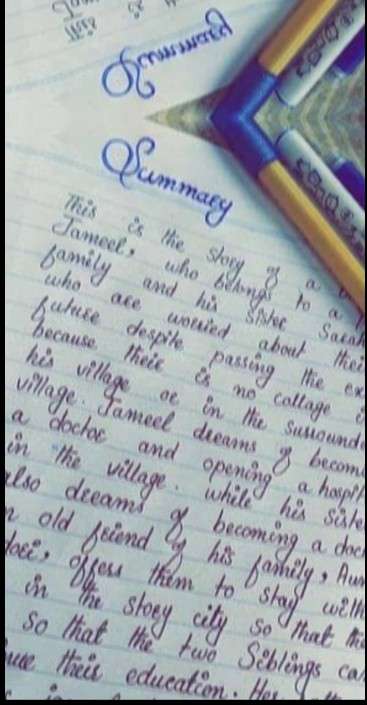 Summary
This is the story of a
Jameel, who belongs to a
family and his Sister Sarah
who are worried about their
future despite passing the ex
because their is no collage i
his village or in the surrounde
village. Jameel dreams of become
a doctor and opening a hospit
in the village. while his siste
also dreams of becoming a doc
n old friend of his family, Aun
offers them to stay with
in the story city so that the
so that the two Siblings ca
their education. Her